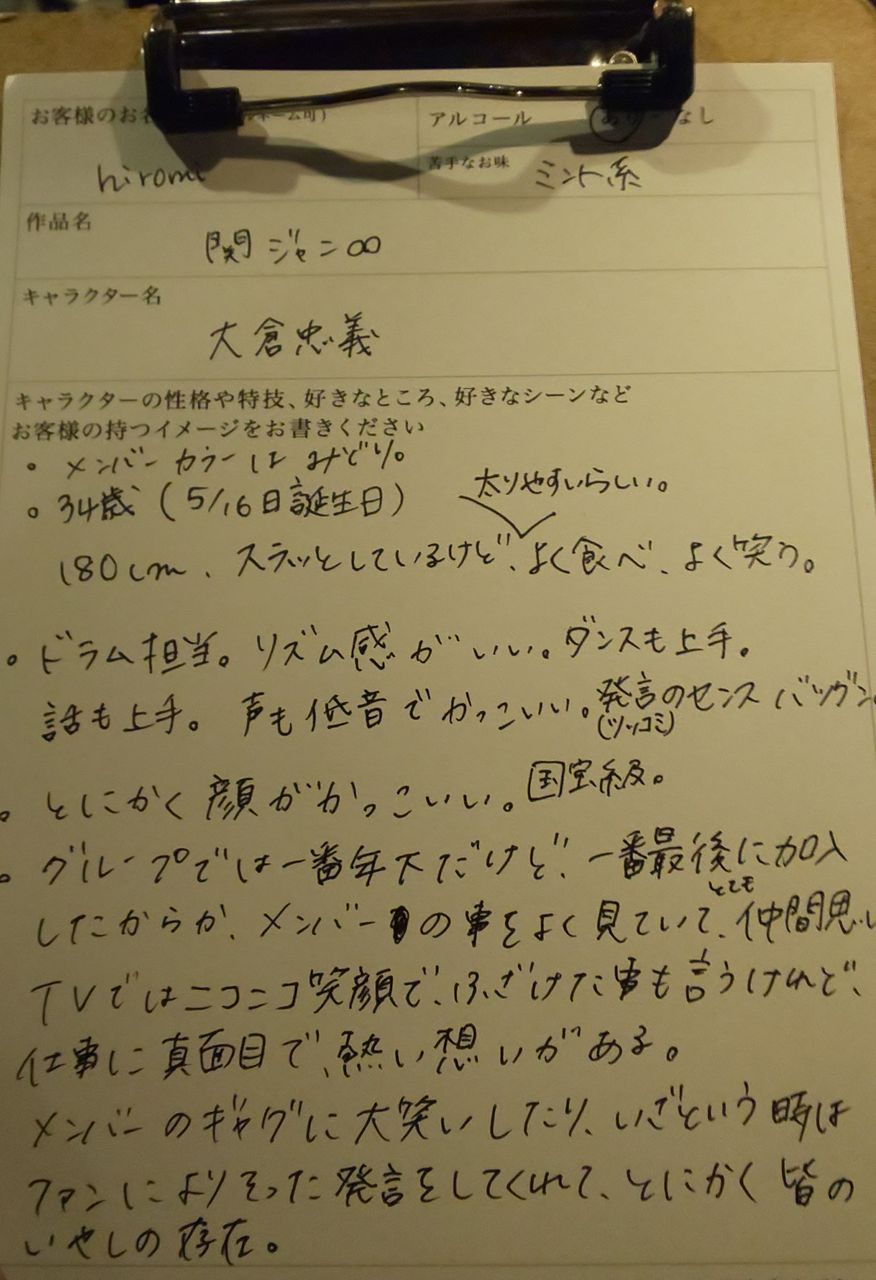 お客様のお名 ーム可)
アルコール あり・なし
hiromi
苦手なお味 ミント系
作品名
関ジャン∞
キャラクター名
大倉忠義
キャラクターの性格や特技、好きなところ、好きなシーンなど
お客様の持つイメージをお書きください
・メンバーカラーはみどり。
・34歳(5/16日誕生日)
太りやすいらしい。
180cm、スラッとしているけど、よく食べ、よく笑う。
・ドラム担当。リズム感がいい。ダンスも上手。
話も上手。声も低音でかっこいい。発言のセンスバツグン。
(ツッコミ)
・とにかく顔がかっこいい。国宝級。
・グループでは一番年下だけど、一番最後に加入
したからか、メンバーの事をよく見ていて、とても仲間思い
TVではニコニコ笑顔で、ふざけた事も言うけれど、
仕事に真面目で、熱い想いがある。
メンバーのギャグに大笑いしたり、いざという時は
ファンによりそった発言をしてくれて、とにかく皆の
いやしの存在。